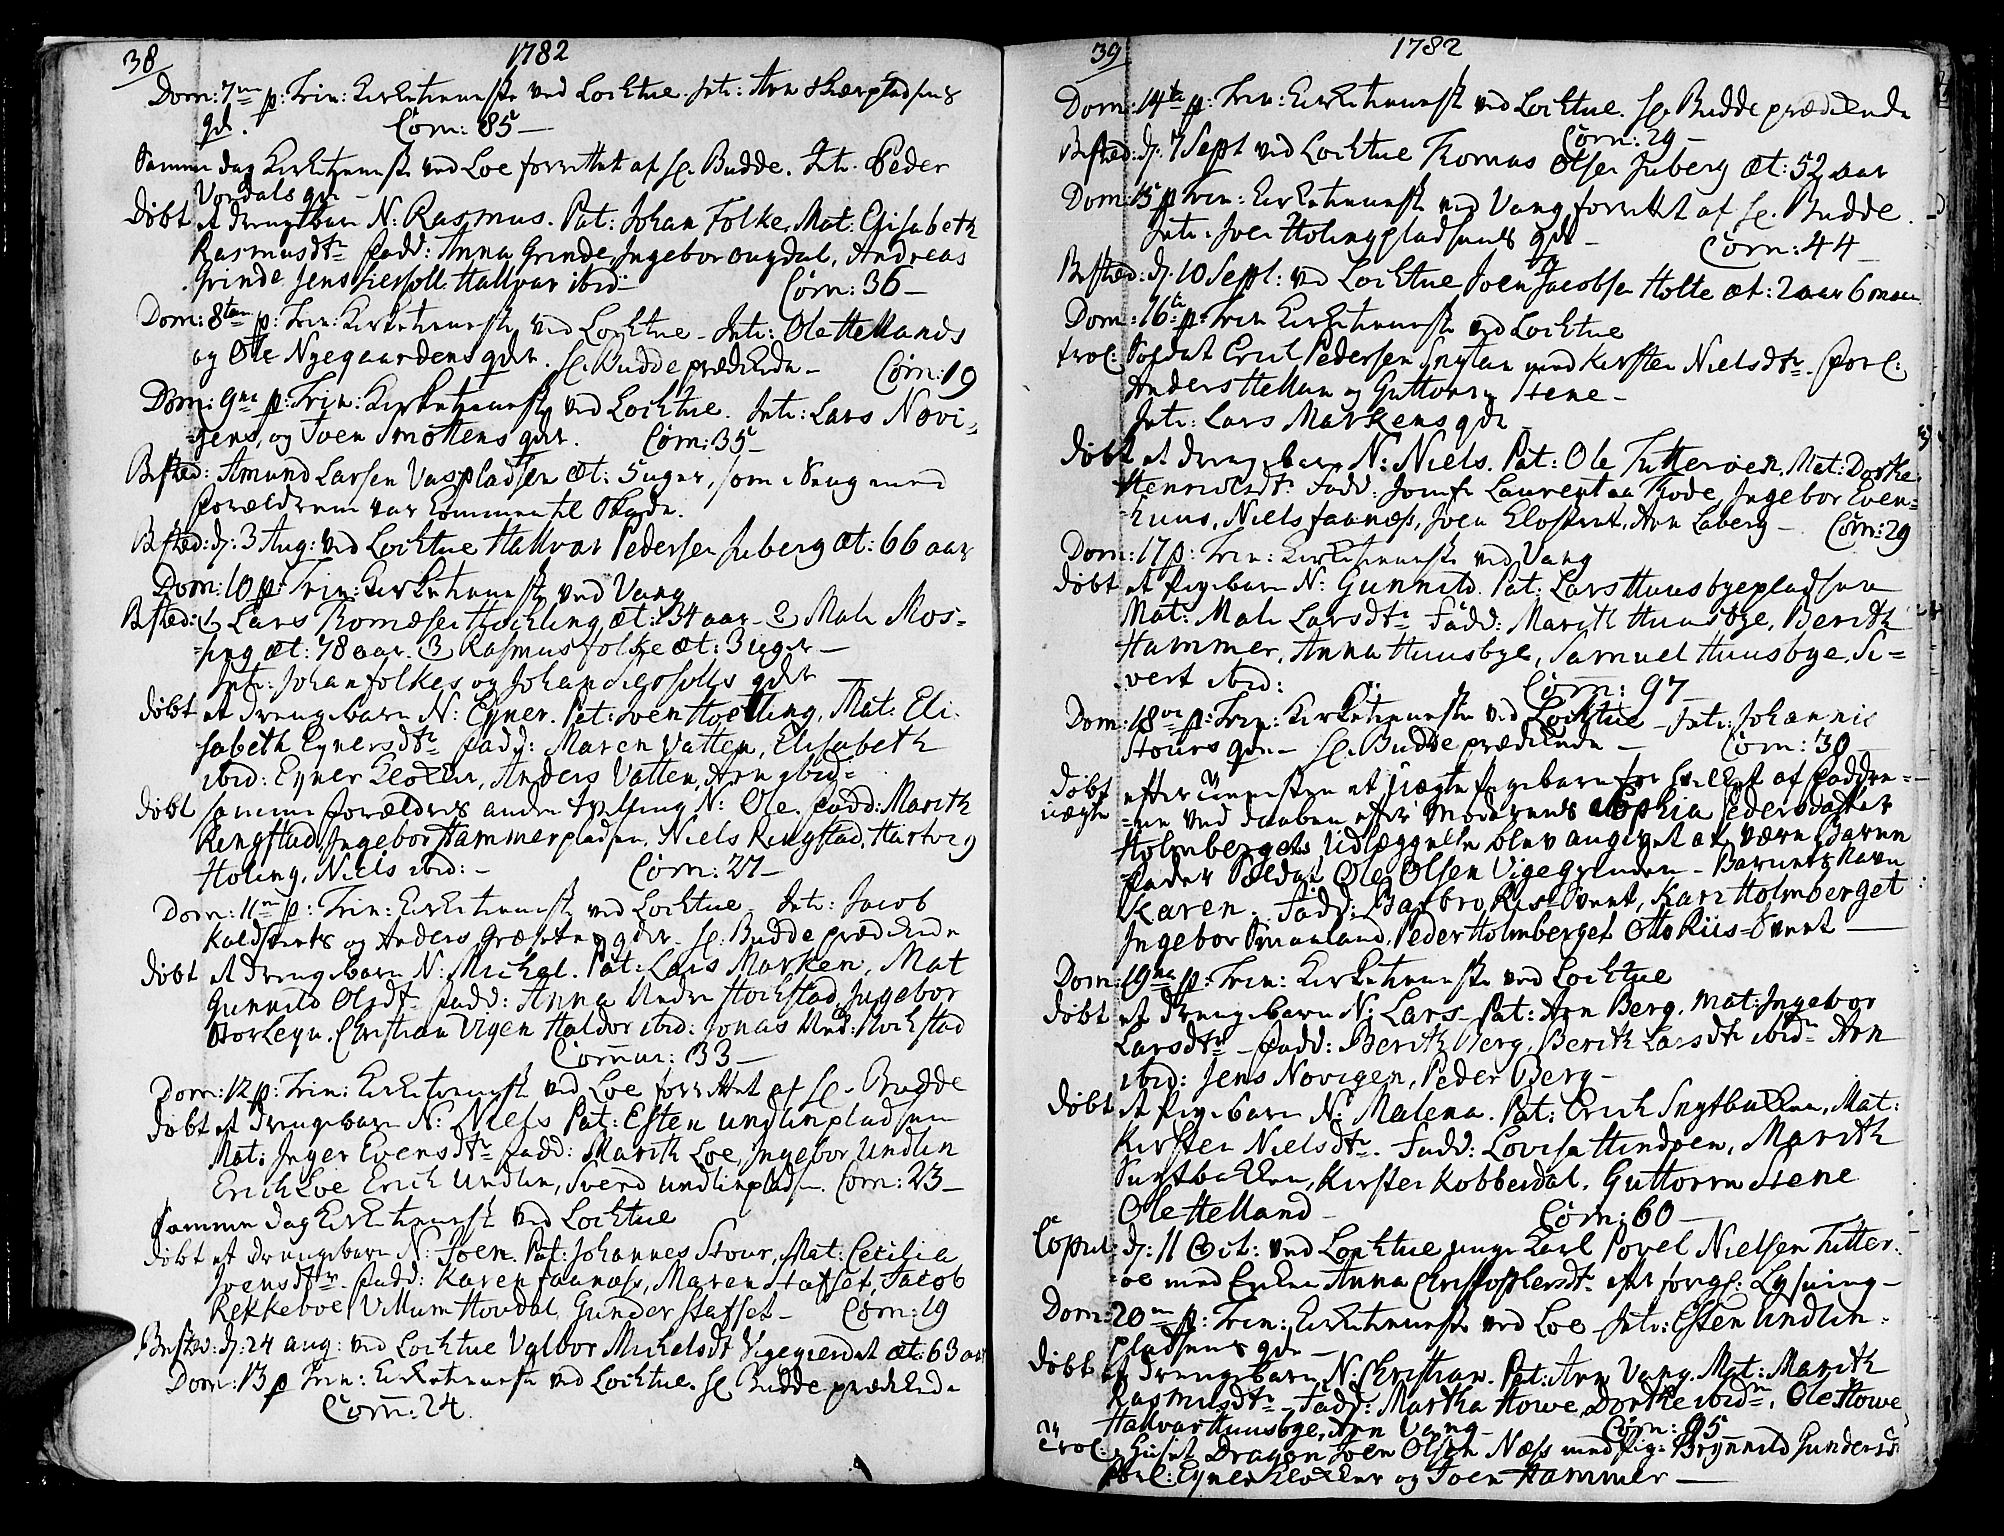 38
1782
Dom: 7me p: Trin: Kirketieneste ved Lochtue. Intr: Arn Skierpladsens
qde. Com: 85 —
Samme dag Kirketieneste ved Loe forrettet af Hr. Budde. Intr: Peder
Vordals qde —
Døbt et drengebarn N: Rasmus. Pat: Johan Folke, Mat: Elisabeth
Rasmusdtr Fadd: Anna Grinde, Ingebor Ougdal, Andreas
Grinde Jens Hallvar ibid: Com: 36 —
Dom: 8tav p: Trin: Kirketieneste ved Lochtue — Intr: Ole Hellands
og Ole Nyegaardens qder. Hr. Budde prædikede — Com: 19
Dom: 9ne p: Trin: Kirketieneste ved Lochtue. Intr: Lars Novi-
gens, og Joen Smottens qder. Com: 35 —
Bested: Amund Larsen Vaspladsen æt: 5 uger, som i Seng med
Forældrene var kommen til Skade.
Bested: d: 3 Aug: ved Lochtue Hallvar Pedersen Juberg æt: 66 aar
Dom: 10 p: Trin: Kirketieneste ved Vang
Bsted: 1) Lars Thomæsen Hoeling æt: 34 aar — 2) Mali Mos-
ling æt: 78 aar. 3) Rasmus Folke æt: 3 uger —
Intr: Johan Folkes og Johan qder
døbt et drengebarn N: Eyner. Pat: Sven Hoeling, Mat: Eli-
sabeth Eynersdtr Fadd: Maren Vatten, Elisabeth
ibid: Eyner Klokker, Anders Vatten, Arn ibid:
døbt samme forældres anden Tvilling N: Ole. Fadd: Marith
Ringstad, Ingebor Hammerpladsen, Niels Ringstad, Hartvig
Holing, Niels ibid: — Com: 27 —
Dom: 11me p: Trin: Kirketieneste ved Lochtue — Intr: Jacob
Koldstents og Anders Græsetes qder. Hr. Budde prædikede
døbt et drengebarn N: Michel. Pat: Lars Marken, Mat
Gunnild Olsdtr Fadd: Anna Nedre Hochstad, Ingebor
Storlegn, Christian Vigen Haldor ibid: Jonas Ned: Hochstad
Commun: 33 —
Dom: 12 p: Trin: Kirketieneste ved Loe forrettet af Hr. Budde
døbt et drengebarn N: Niels Pat: Esten Undlinpladsen
Mat: Inger Evensdtr Fadd: Marith Loe, Ingebor Undlin
Erich Loe Erich Undlin, Sverd Undlinpladsen. Com: 23 —
Samme dag Kirketieneste ved Lochtue
døbt et drengebarn N: Joen. Pat: Johannes Stour, Mat: Cecilia
Joensdtr. Fadd: Karen Faanæss, Maren Stafset, Jacob
Rekkeboe, Villum Hovdal, Gunder Stafset — Com: 19
Bested: d: 24 aug: ved Lochtue Valbor Michelsdtr Vigegierdet æt: 63 aar
Dom: 13 p Trin: Kirketieneste ved Lochtue. Hr Budde prædikede
Com: 24.
39
1782
Dom: 14ta p: Trin: Kirketieneste ved Lochtue. Hr. Budde prædikede
Com: 29 —
Bested: d: 7 Sept ved Lochtue Thomas Olsen Juberg æt: 52 aar
Dom: 15 p Trin: Kirketieneste ved Vang forrettet af Hr. Budde.
Intr: Joen Holingpladsens qde — Com: 44 —
Bested: d: 10 Sept: ved Lochtue Joen Jacobsen Holte æt: 2 aar 6 maan
Dom: 16ta p: Trin Kirketieneste ved Lochtue
trol: Soldat Erich Pedersen med Kirsten Nielsdtr. Forl:
Anders Hellan og Guttorm Stene —
Intr: Lars Markens qde
døbt et drengebarn N: Niels. Pat: Ole Titterøen, Mat: Dorthe
Henrichsdtr Fadd: Jomfr Laurentza Thode, Ingebor Even-
huus, Niels Faanæss, Joen Elostrand, Arn Laberg — Com: 29
Dom: 17 p: Trin: Kirketieneste ved Vang
døbt et Pigebarn N: Gunnild. Pat: Lars Huusbyepladsen
Mat: Mali Larsdtr Fadd: Marith Huusbye, Berith
Hammer, Anna Huusbye, Samuel Huusbye, Si-
vert ibid: Com: 97 —
Dom: 18ve p: Trin: Kirketieneste ved Lochtue — Intr: Johannis
Stours qde — Hr. Budde prædikede — Com: 30 —
døbt efter Tienesten et uægte pigebarn for hvilket af Faddre-
uægte ne ved daaben efter Moderens Sophia Pedersdatter
Holmbergets Udlæggelse blev angivet at være Barne
fader Soldat Ole Olsen Vigegrinden — Barnets Navn
Karen. Fadd: Barbro Riis-Øvent, Kari Holmberget
Ingebor Smaaland, Peder Holmberget Otto Riis-Øvent —
Dom: 19na p: Trin: Kirketieneste ved Lochtue
døbt et drengebarn N: Lars. Pat: Arn Berg, Mat: Ingebor
Larsdtr — Fadd: Berith Berg, Berith Larsdtr ibid: Arn
ibid: Jens Novigen, Peder Berg —
døbt et Pigebarn N: Malena. Pat: Erich Snytbakken, Mat:
Kirsten Nielsdtr. Fadd: Lovisa Hindpen, Marith
Suntbakken, Kirsten Kobberdal, Guttorm Stene
Ole Helland — Com: 60 —
Copul: d: 11 Oct: ved Lochtue unge Karl Povel Nielsen Titter-
øe med Enken Anna Christophersdtr efter forrige Lysning —
Dom: 20me p: Trin: Kirketieneste ved Loe — Intr: Esten Undlin-
pladsens qde —
døbt et drengebarn N: Christian. Pat: Arn Vang, Mat: Marith
Rasmusdtr — Fadd: Martha Howe Dorthe ibid:, Ole Howe
Hallvar Huusbye, Arn Vang — Com: 95 —
trol: Dragon Joen Olsen Næss med Pige Brynnild Gundersd
Forl: Eyner Klokker og Joen Hammer —